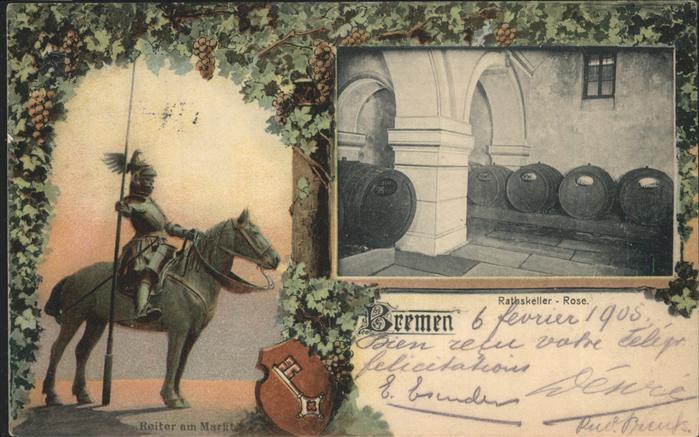 Rathskeller - Rose.
Bremen 6 février 1905.
Bien reçu votre télégr
félicitations
Désiré
Reiter am Markt